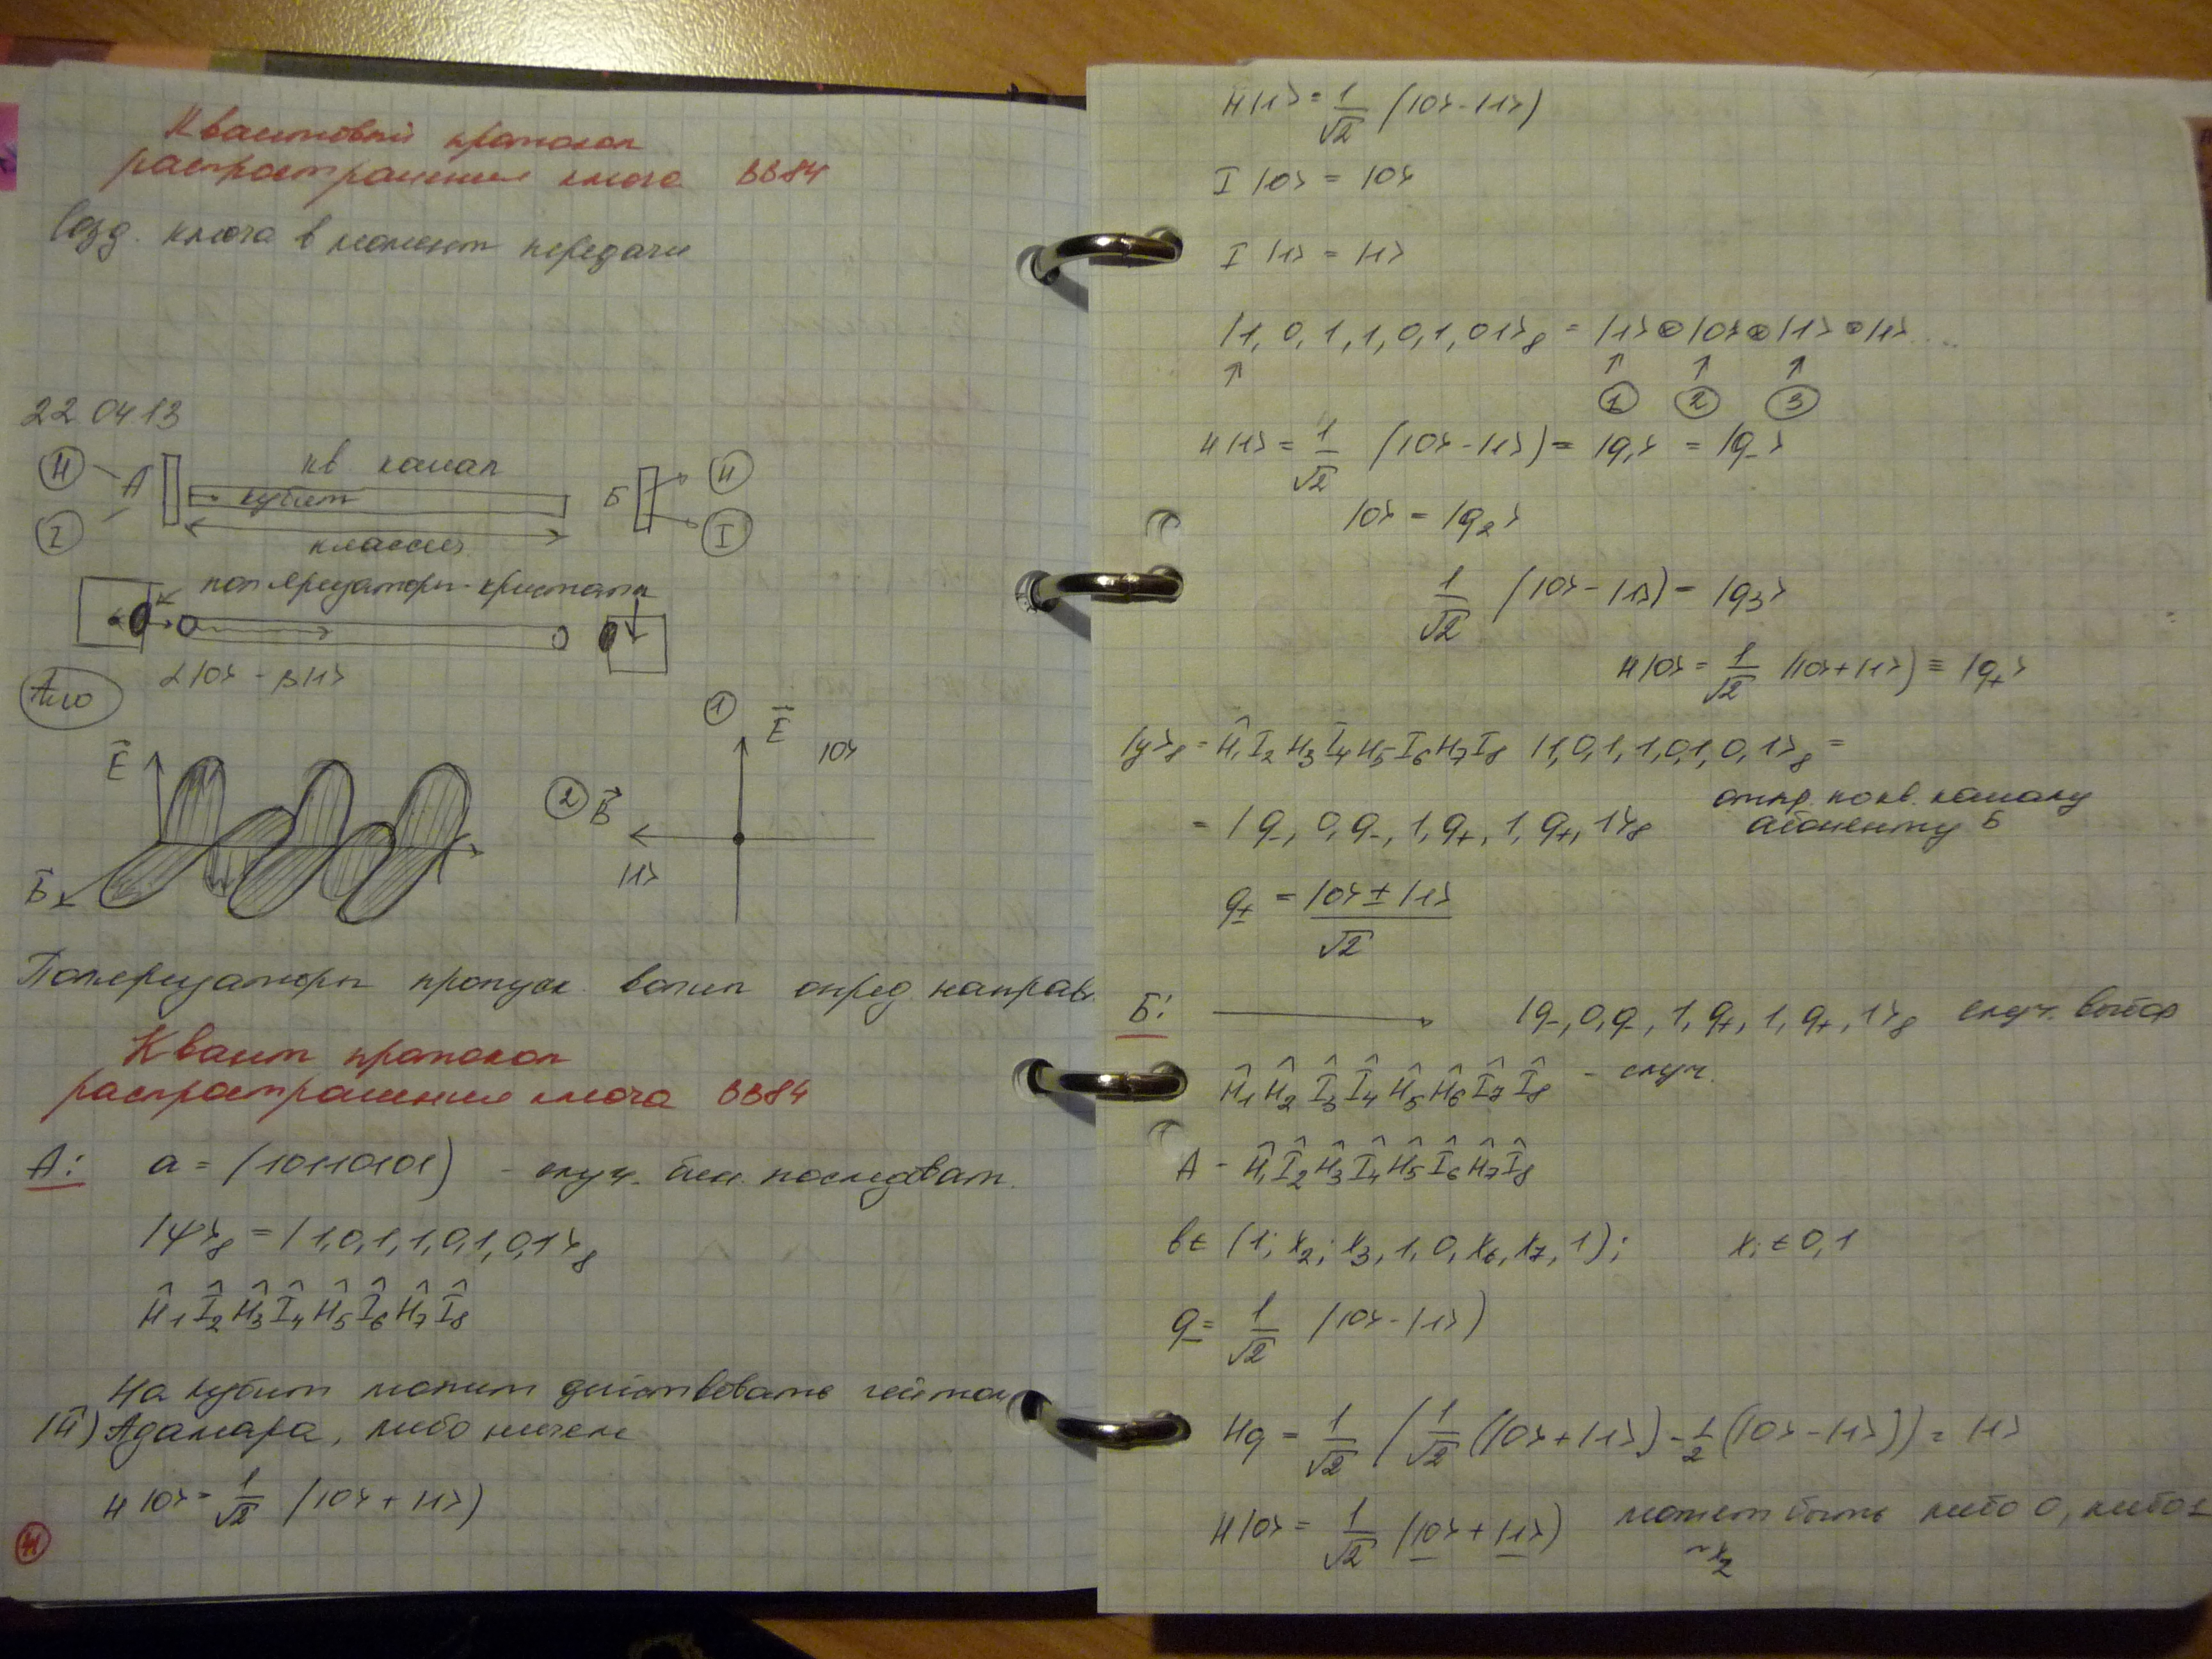 Квантовый протокол
распространения ключа BB84
Созд. ключа в момент передачи
22.04.13
H
A
кв. канал
Б
H
I
кубит
I
классич.
поляризаторы-кристаллы
α|0> - β|1>
E
1
E
|0>
2
B
|1>
B
Поляризаторы пропуск. волны опред. направл.
Квант протокол
распространения ключа BB84
A: a = (10110101) - случ. бин. последоват.
|ψ>8 = |1,0,1,1,0,1,0,1>8
Ĥ1 Î2 Ĥ3 Î4 Ĥ5 Î6 Ĥ7 Î8
На кубит может действовать гейтом
(Ĥ) Адамара, либо ничем
H|0> = 1/√2 (|0> + |1>)
41
H|1> = 1/√2 (|0> - |1>)
I|0> = |0>
I|1> = |1>
|1,0,1,1,0,1,01>8 = |1>⊗|0>⊗|1>⊗|1>....
↑ ↑ ↑ ↑
1 2 3
H|1> = 1/√2 (|0> - |1>) = |q1> = |q->
|0> = |q2>
1/√2 (|0> - |1>) = |q3>
H|0> = 1/√2 (|0> + |1>) ≡ |q+>
|y>8 = Ĥ1 I2 H3 Î4 H5 I6 H7 I8 |1,0,1,1,0,1,0,1>8 =
= |q-, 0, q-, 1, q+, 1, q+, 1>8 отпр. по кв. каналу
абоненту Б
q± = |0> ± |1> / √2
Б: → |q-, 0, q-, 1, q+, 1, q+, 1>8 случ. выбор
Ĥ1 Ĥ2 Î3 Î4 Ĥ5 Ĥ6 Î7 Î8 - случ.
A - Ĥ1 Î2 Ĥ3 Î4 Ĥ5 Î6 Ĥ7 Î8
b ∈ (1; x2; x3, 1, 0, x6, x7, 1); xi ∈ 0,1
q- = 1/√2 (|0> - |1>)
Hq = 1/√2 (1/√2 (|0> + |1>) - 1/2 (|0> - |1>)) = |1>
H|0> = 1/√2 (|0> + |1>) может быть либо 0, либо 1
~ x2